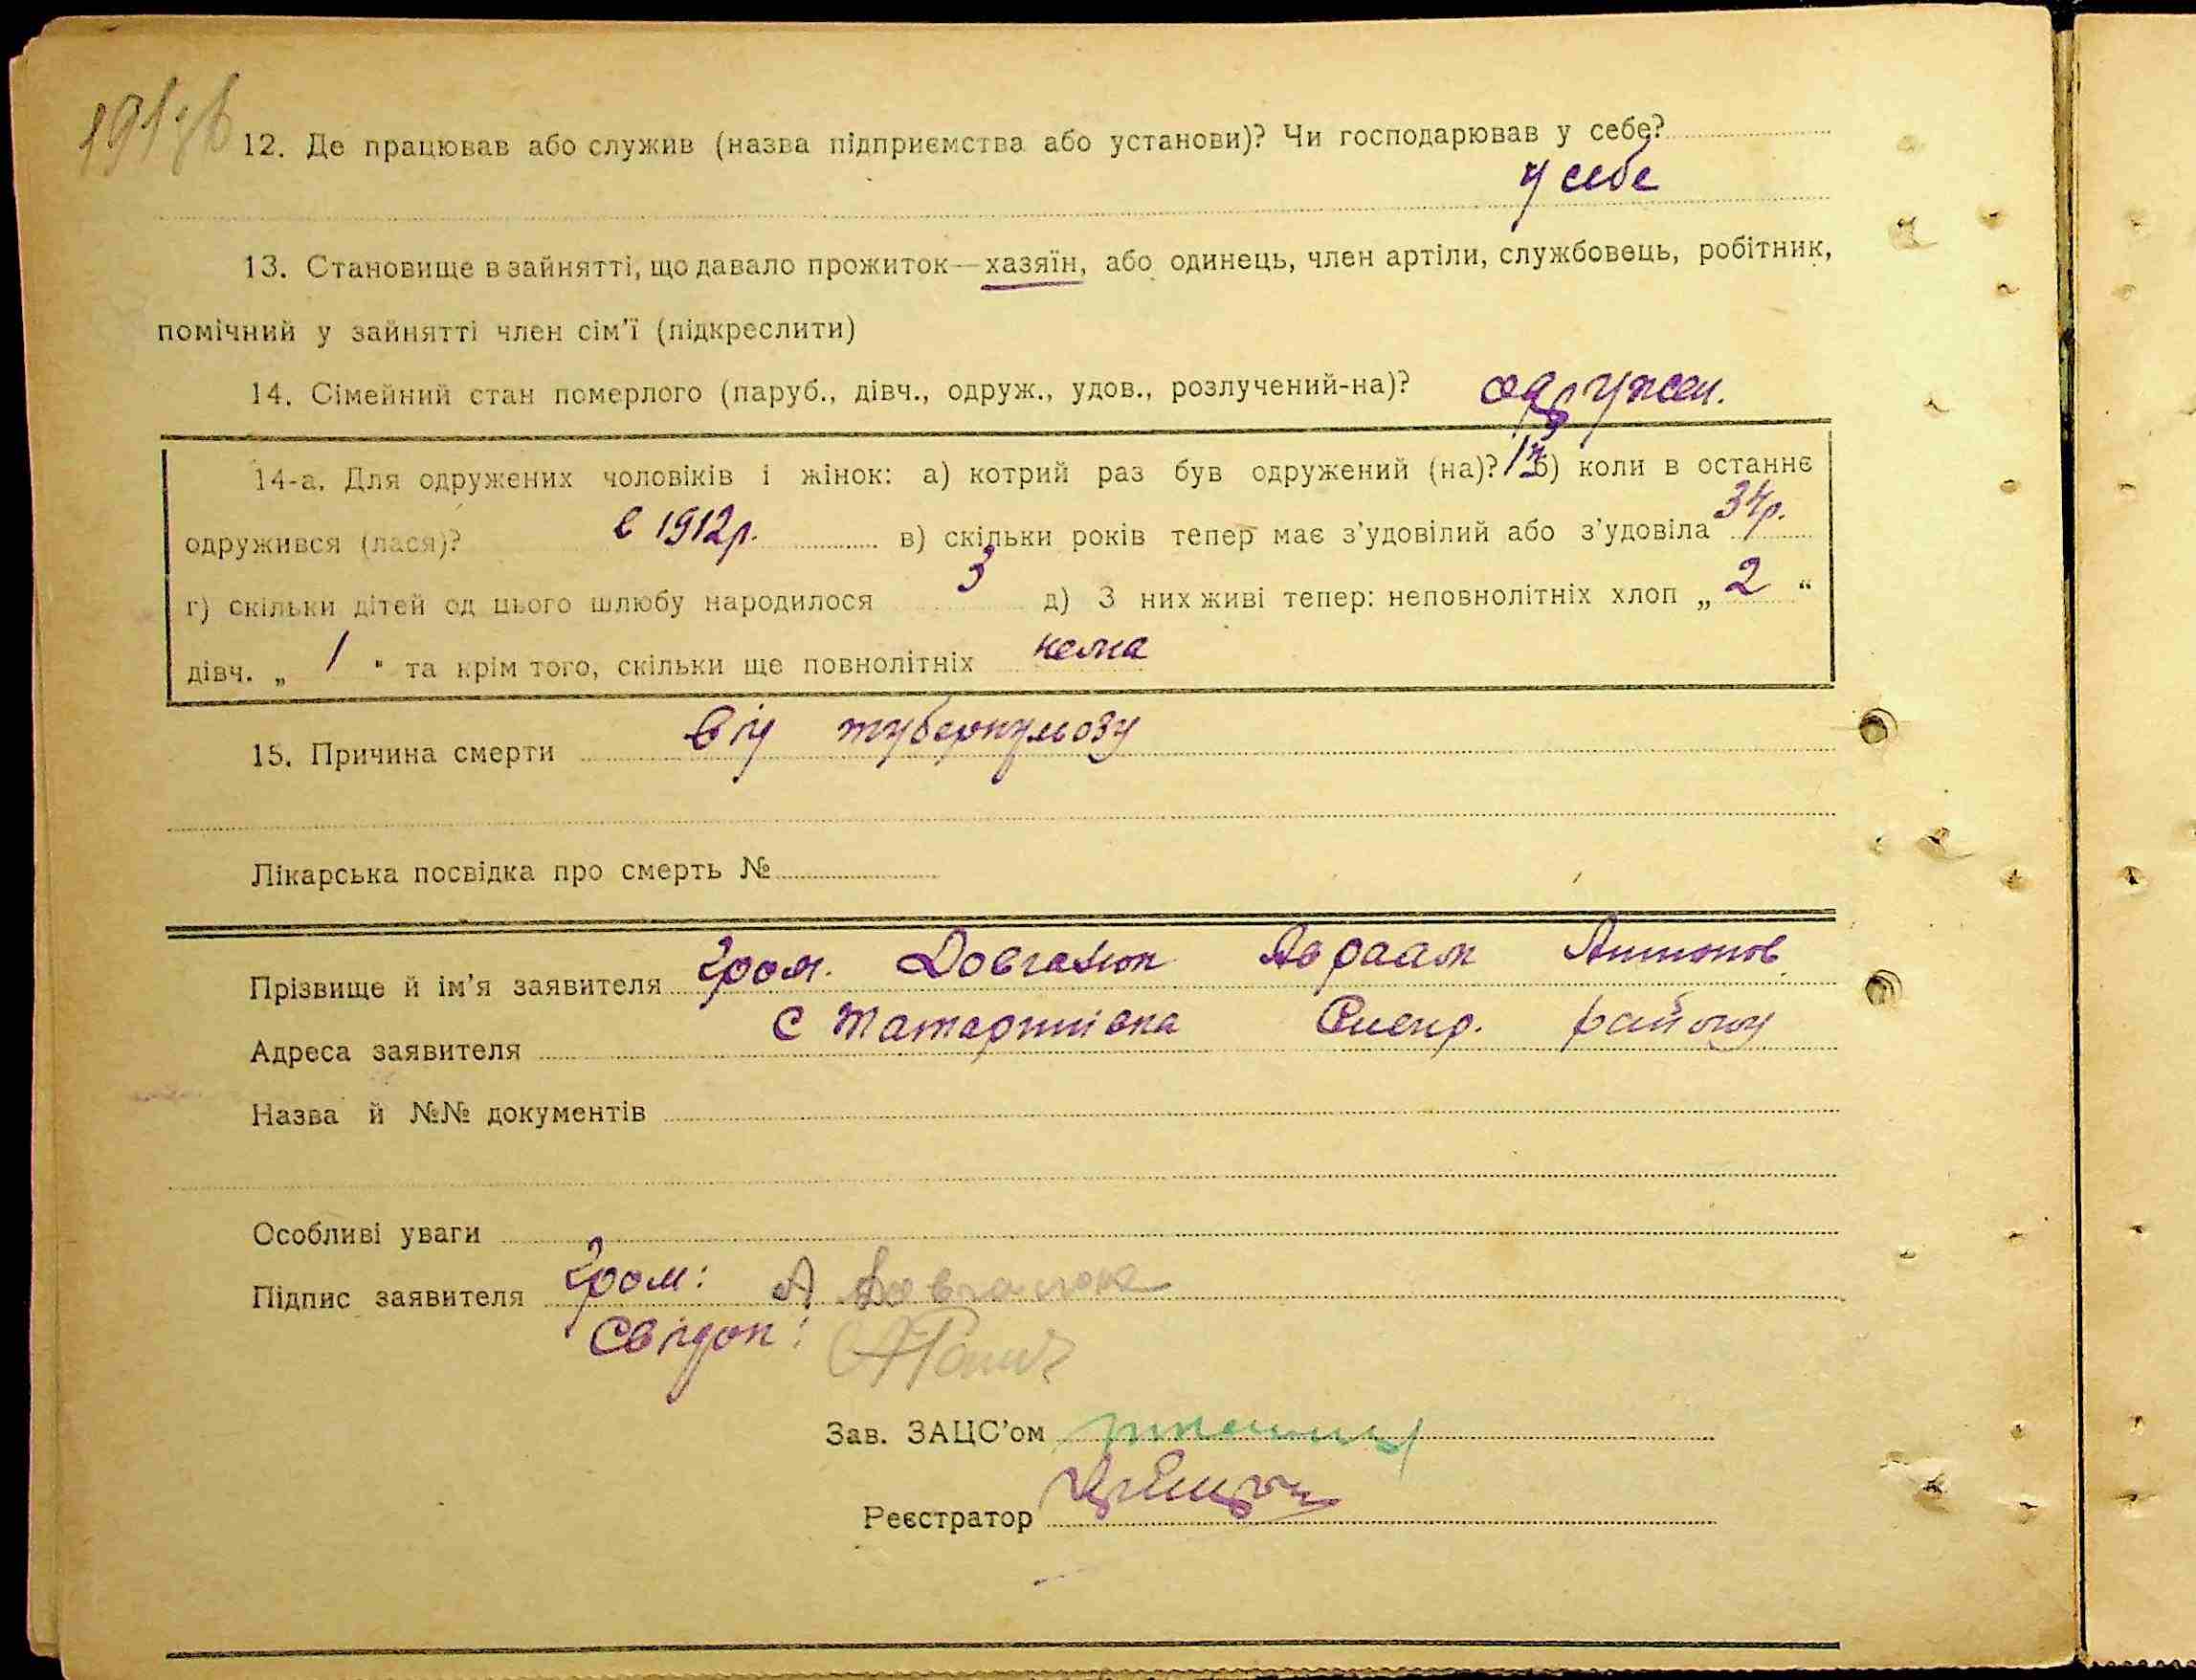 12. Де працював або служив (назва підприємства або установи)? Чи господарював у себе?
у себе
13. Становище в зайнятті, що давало прожиток—хазяїн, або одинець, член артіли, службовець, робітник,
помічний у зайнятті член сім'ї (підкреслити)
14. Сімейний стан померлого (паруб., дівч., одруж., удов., розлучений-на)? одружен.
14-а. Для одружених чоловіків і жінок: а) котрий раз був одружений (на)? 1й б) коли в останнє
одружився (лася)? в 1912р. в) скільки років тепер має з'удовілий або з'удовіла 34р.
г) скільки дітей од цього шлюбу народилося 3 д) З них живі тепер: неповнолітніх хлоп „ 2 "
дівч. „ 1 " та крім того, скільки ще повнолітніх нема
15. Причина смерти від туберкульозу
Лікарська посвідка про смерть №
Прізвище й ім'я заявителя гром. Довгалюк Авраам Антонов
Адреса заявителя с Татаринівка району
Назва й №№ документів
Особливі уваги
Підпис заявителя Гром: А Довгалюк
Свідок:
Зав. ЗАЦС'ом
Реєстратор